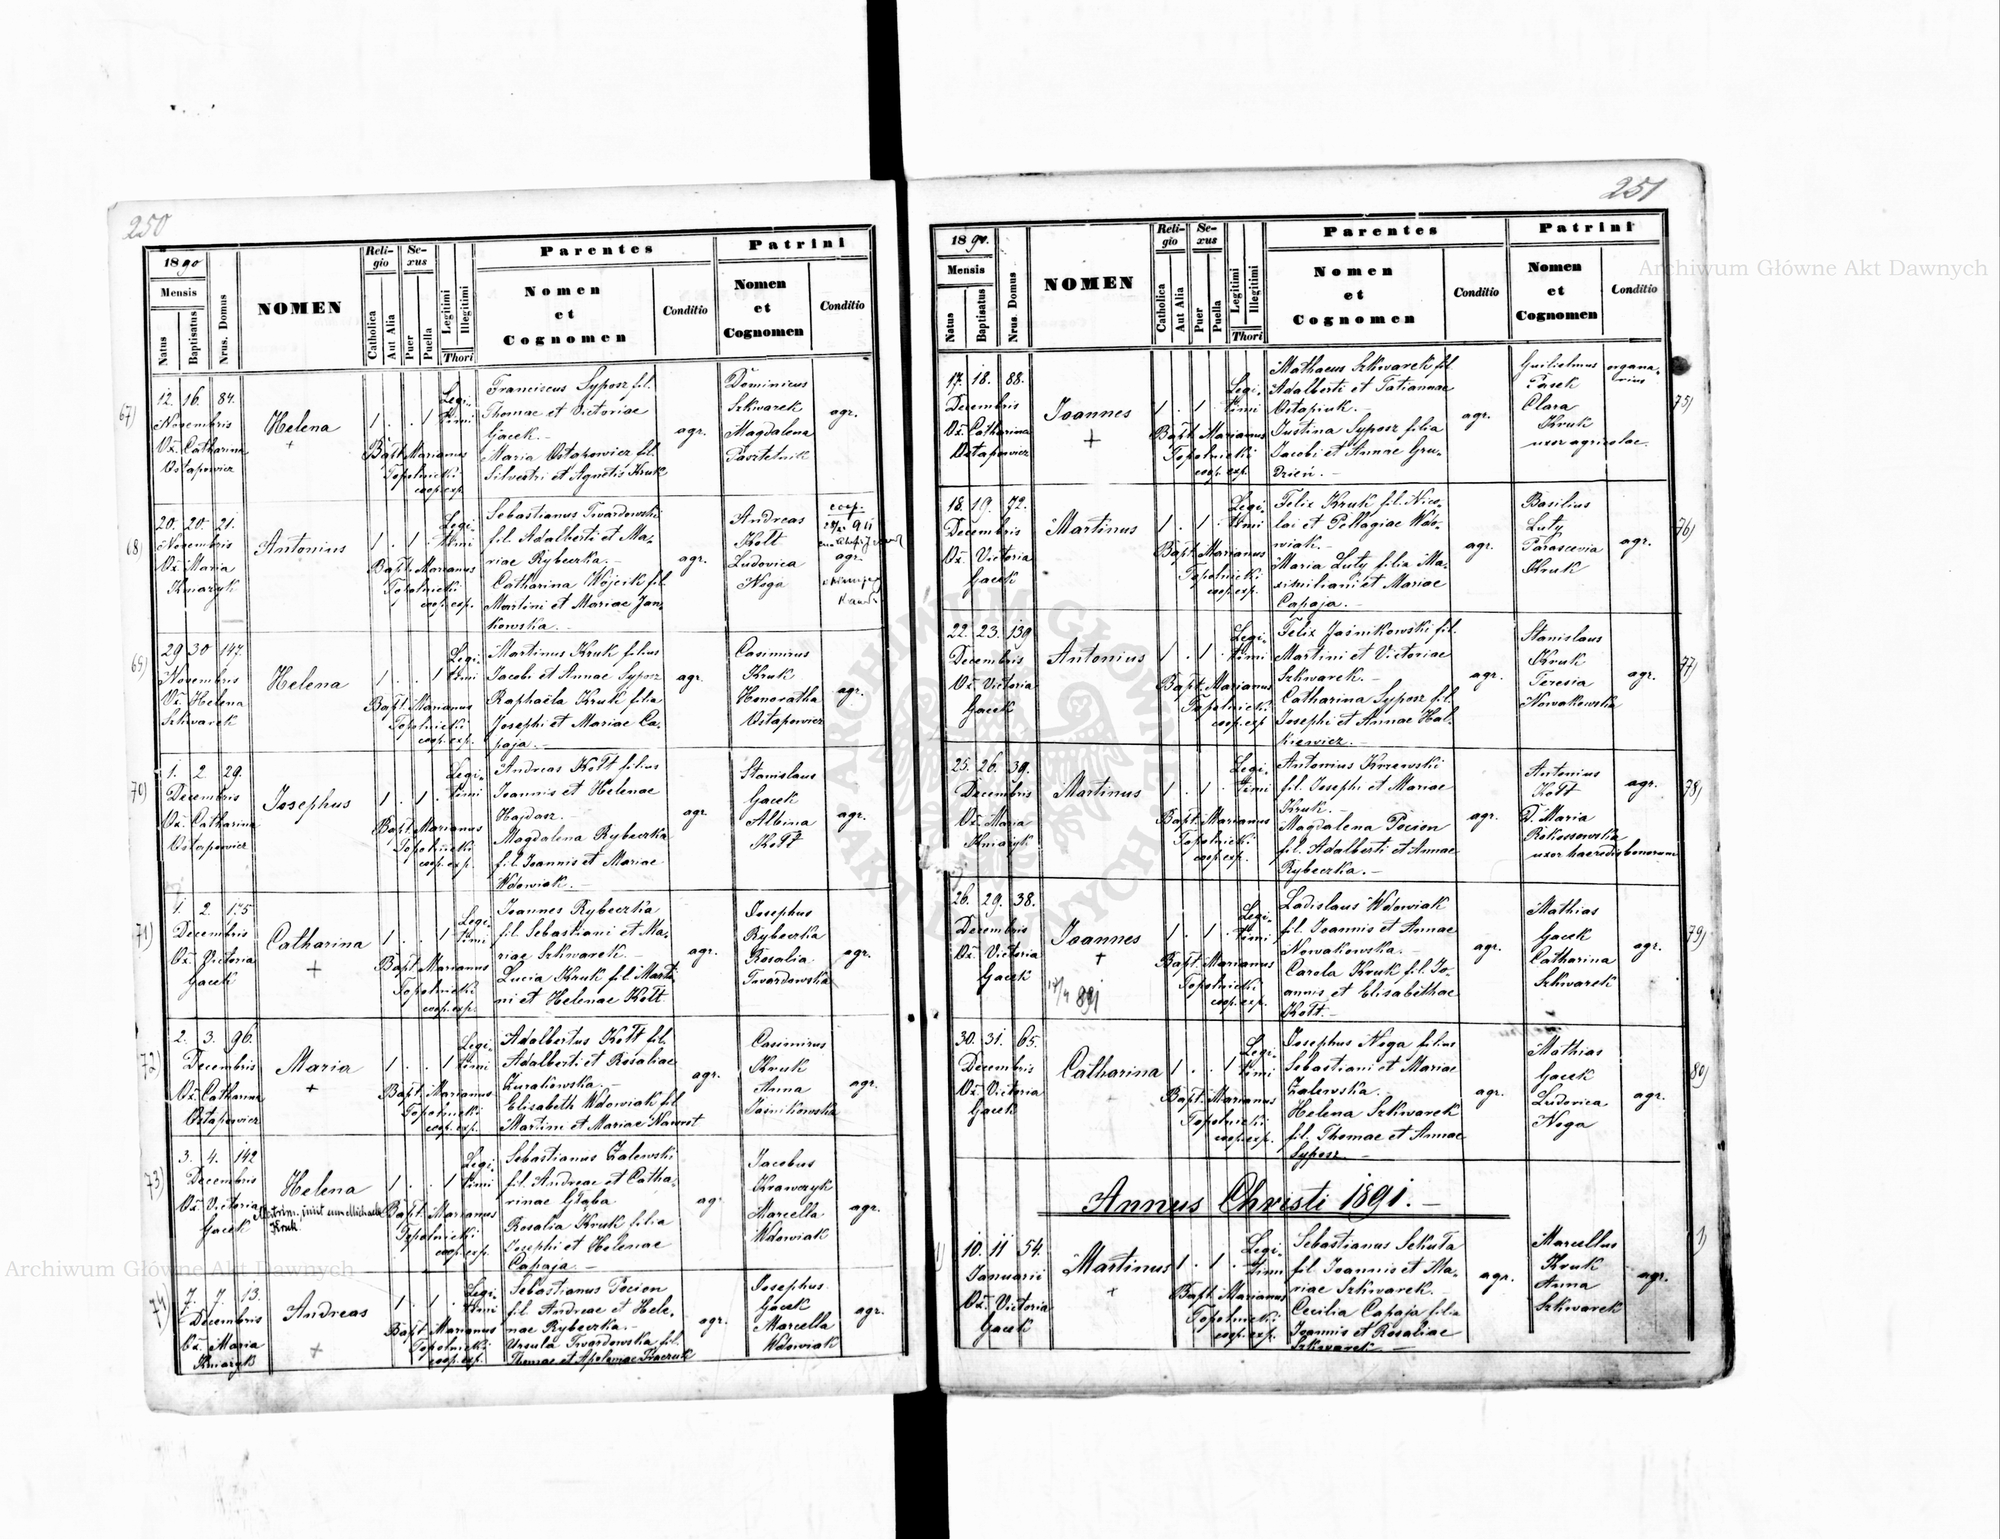 250
1890
Mensis
Natus
Baptisatus
Nrus. Domus
NOMEN
Reli-
gio
Catholica
Aut Alia
Se-
xus
Puer
Puella
Legitimi
Illegitimi
Thori
Parentes
Nomen
et
Cognomen
Conditio
Patrini
Nomen
et
Cognomen
Conditio
67)
12. 16. 84.
Novembris
Ob. Catharina
Ostapowicz
Helena
+
1 . . 1
Legi-
timi
Bapt. Marianus
Topolnicki
coop. exp.
Franciscus Syposz fil.
Thomae et Victoriae
Gacek. -
Maria Ostapowicz fil.
Silvestri et Agnetis Kruk
agr.
Dominicus
Szkwarek
Magdalena
agr.
68)
20. 20. 21.
Novembris
Ob. Maria
Kmaryk
Antonius
1 . 1 .
Legi-
timi
Bapt. Marianus
Topolnicki
coop. exp.
Sebastianus Twardowski
fil. Adalberti et Ma-
riae Rybeczka. -
Catharina Wojcik fil.
Martini et Mariae Jan-
kowska. -
agr.
Andreas
Kott
Ludovica
Noga
agr.
69)
29 30 147.
Novembris
Ob. Helena
Szkwarek
Helena
1 . . 1
Legi-
timi
Bapt. Marianus
Topolnicki
coop. exp.
Martinus Kruk filius
Jacobi et Annae Syposz
Raphaela Kruk filia
Josephi et Mariae Ca-
paja. -
agr.
Casimirus
Kruk
Honoratha
Ostapowicz
agr.
70)
1. 2. 29.
Decembris
Ob. Catharina
Ostapowicz
Josephus
1 . 1 .
Legi-
timi
Bapt. Marianus
Topolnicki
coop. exp.
Andreas Kott filius
Joannis et Helenae
Hajdasz. -
Magdalena Rybeczka
fil. Joannis et Mariae
Wdowiak. -
agr.
Stanislaus
Gacek
Albina
Kott
agr.
71)
1. 2. 175
Decembris
Ob. Victoria
Gacek
Catharina
+
1 . . 1
Legi-
timi
Bapt. Marianus
Topolnicki
coop. exp.
Joannes Rybeczka
fil. Sebastiani et Ma-
riae Szkwarek. -
Lucia Kruk fil. Marti-
ni et Helenae Kott
agr.
Josephus
Rybeczka
Rosalia
Twardowska
agr.
72)
2. 3. 96.
Decembris
Ob. Catharina
Ostapowicz
Maria
+
1 . . 1
Legi-
timi
Bapt. Marianus
Topolnicki
coop. exp.
Adalbertus Kott fil.
Adalberti et Rosaliae
Zuraliowska. -
Elisabeth Wdowiak fil.
Martini et Mariae Nawrot
agr.
Casimirus
Kruk
Anna
Jasnikowska
agr.
73)
3. 4. 142
Decembris
Ob. Victoria
Gacek
Helena
Matrim. iniit cum Michaele
Kruk
1 . . 1
Legi-
timi
Bapt. Marianus
Topolnicki
coop. exp.
Sebastianus Zalewski
fil. Andreae et Catha-
rinae Głąba
Rosalia Kruk filia
Josephi et Helenae
Capaja. -
agr.
Jacobus
Krawczyk
Marcella
Wdowiak
agr.
74)
7. 7. 13.
Decembris
Ob. Maria
Kmaryk
Andreas
+
1 . 1 .
Legi-
timi
Bapt. Marianus
Topolnicki
coop. exp.
Sebastianus Pocion
fil. Andreae et Hele-
nae Rybeczka. -
Ursula Twardowska fil.
Thomae et Apoloniae
agr.
Josephus
Gacek
Marcella
Wdowiak
agr.
251
1890.
Mensis
Natus
Baptisatus
Nrus. Domus
NOMEN
Reli-
gio
Catholica
Aut Alia
Se-
xus
Puer
Puella
Legitimi
Illegitimi
Thori
Parentes
Nomen
et
Cognomen
Conditio
Patrini
Nomen
et
Cognomen
Conditio
17. 18. 88.
Decembris
Ob. Catharina
Ostapowicz
Joannes
+
1 . 1 .
Legi-
timi
Bapt. Marianus
Topolnicki
coop. exp.
Mathaeus Szkwarek fil.
Adalberti et Tatiannae
Ostapiuk. -
Justina Syposz filia
Jacobi et Annae Gru-
dzień. -
agr.
Guilielmus
Pasek
Clara
Kruk
uxor agricolae.
organa-
rius
75)
18. 19. 72.
Decembris
Ob. Victoria
Gacek
Martinus
1 . 1 .
Legi-
timi
Bapt. Marianus
Topolnicki
coop. exp.
Felix Kruk fil. Nico-
lai et Pellagiae Wdo-
wiak. -
Maria Luty filia Ma-
ximiliani et Mariae
Capaja. -
agr.
Basilius
Luty
Parascevia
Kruk
agr.
76)
22. 23. 139
Decembris
Ob. Victoria
Gacek
Antonius
1 . 1 .
Legi-
timi
Bapt. Marianus
Topolnicki
coop. exp.
Felix Jaśnikowski fil.
Martini et Victoriae
Szkwarek. -
Catharina Syposz fil.
Josephi et Annae Hal-
kiewicz. -
agr.
Stanislaus
Kruk
Teresia
Nowakowska
agr.
77)
25. 26. 39.
Decembris
Ob. Maria
Kmaryk
Martinus
1 . 1 .
Legi-
timi
Bapt. Marianus
Topolnicki
coop. exp.
Antonius Krzewski
fil. Josephi et Mariae
Kruk. -
Magdalena Pocion
fil. Adalberti et Annae
Rybeczka. -
agr.
Antonius
Kott
D. Maria
Rokossowska
uxor haeredis bonorum
agr.
78)
26. 29. 38.
Decembris
Ob. Victoria
Gacek
Joannes
+
17/4 891
1 . 1 .
Legi-
timi
Bapt. Marianus
Topolnicki
coop. exp.
Ladislaus Wdowiak
fil. Joannis et Annae
Nowakowska. -
Carola Kruk fil. Jo-
annis et Elisabethae
Kott. -
agr.
Mathias
Gacek
Catharina
Szkwarek
agr.
79)
30. 31. 65.
Decembris
Ob. Victoria
Gacek
Catharina
1 . . 1
Legi-
timi
Bapt. Marianus
Topolnicki
coop. exp.
Josephus Noga filius
Sebastiani et Mariae
Zalewska. -
Helena Szkwarek
fil. Thomae et Annae
Syposz. -
agr.
Mathias
Gacek
Ludovica
Noga
agr.
80)
Annus Christi 1891. -
10. 11 54.
Januarii
Ob. Victoria
Gacek
Martinus
+
1 . 1 .
Legi-
timi
Bapt. Marianus
Topolnicki
coop. exp.
Sebastianus Sekuła
fil. Joannis et Ma-
riae Szkwarek.
Cecilia Capaja filia
Joannis et Rosaliae
Szkwarek -
agr.
Marcellus
Kruk
Anna
Szkwarek
agr.
1)
Archiwum Główne Akt Dawnych
Archiwum Główne Akt Dawnych
ARCHIWUM GŁÓWNE AKT DAWNYCH